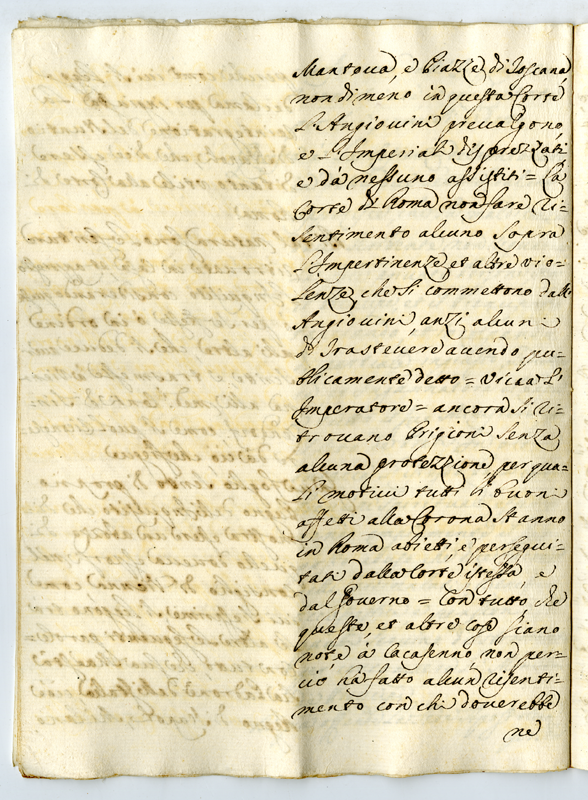 Mantova, e Piazze di Toscana
non di meno in questa Corte
L'Angiovini prevalgono
e L'Imperiali disprezzati
e dà nessuno assistiti = La
Corte di Roma non fare ri=
sentimento alcuno sopra
L'Impertinenze et altre vio=
lenze che si commettono dalli
Angiovini, anzi alcuni
di Trastevere avendo pu=
blicamente detto = viva L'
Imperatore = ancora si ri=
trovano Prigioni senza
alcuna protezzione per qua=
li motivi tutti li buoni
affetti alla Corona stanno
in Roma abietti e persegui=
tati dalla Corte istessa, e
dal Governo = Con tutto che
queste, et altre cose siano
note à Lacasenno, non per=
ciò hà fatto alcun risenti=
mento con chi doverebbe
ne